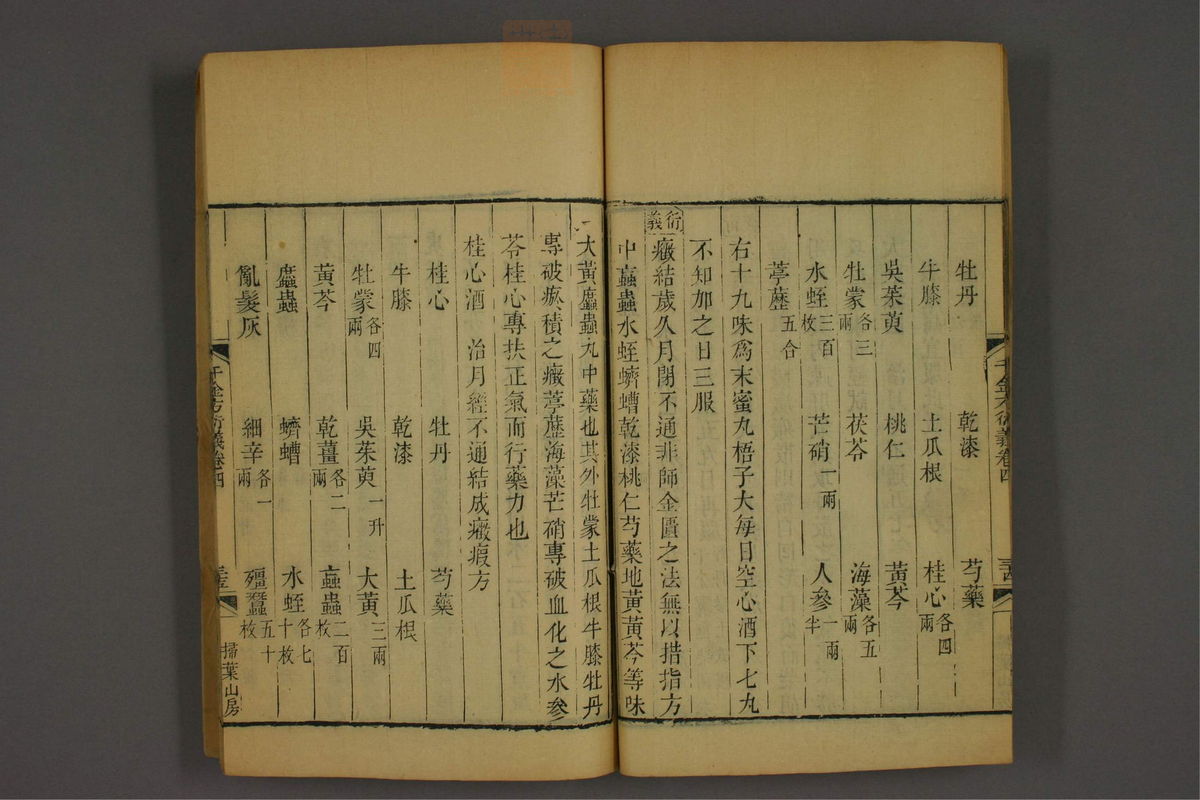 牡丹 乾漆 芍藥
牛膝 土瓜根 桂心各四兩
吳茱萸 桃仁 黃芩
牡蒙各三兩 茯苓 海藻各五兩
水蛭三百枚 芒硝一兩 人參一兩半
葶藶五合
右十九味爲末蜜丸梧子大每日空心酒下七丸
不知加之日三服
衍義
癥結歲久月閉不通非師金匱之法無以措指方
中蝱蟲水蛭蠐螬乾漆桃仁芍藥地黃黃芩等味
千金方衍義卷四
大黃䗪蟲丸中藥也其外牡蒙土瓜根牛膝牡丹
專破瘀積之癥葶藶海藻芒硝專破血化之水參
苓桂心專扶正氣而行藥力也
桂心酒 治月經不通結成癥瘕方
桂心 牡丹 芍藥
牛膝 乾漆 土瓜根
牡蒙各四兩 吳茱萸一升 大黃三兩
黃芩 乾薑各二兩 蝱蟲二百枚
䗪蟲 蠐螬 水蛭各七十枚
亂髮灰 細辛各一兩 殭蠶五十枚
千金方衍義卷四
掃葉山房